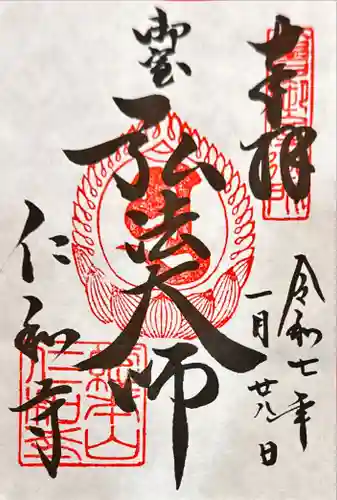 奉拝
令和七年
一月廿八日
御室
弘法大師
仁和寺